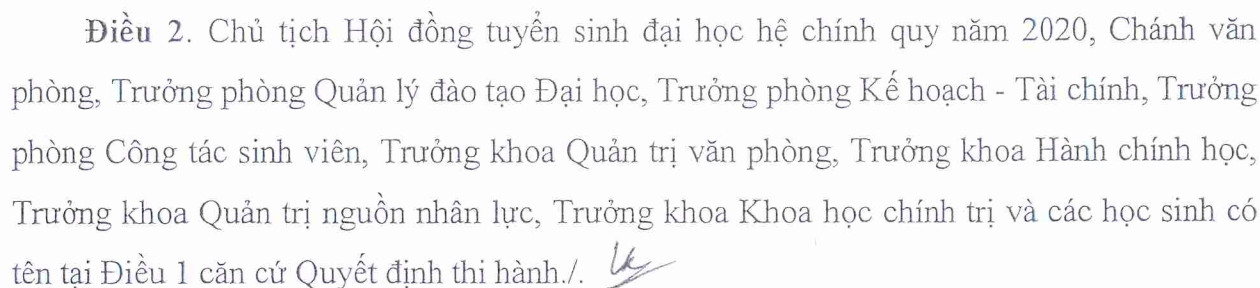 Điều 2. Chủ tịch Hội đồng tuyển sinh đại học hệ chính quy năm 2020, Chánh văn
phòng, Trưởng phòng Quản lý đào tạo Đại học, Trưởng phòng Kế hoạch - Tài chính, Trưởng
phòng Công tác sinh viên, Trưởng khoa Quản trị văn phòng, Trưởng khoa Hành chính học,
Trưởng khoa Quản trị nguồn nhân lực, Trưởng khoa Khoa học chính trị và các học sinh có
tên tại Điều 1 căn cứ Quyết định thi hành./.